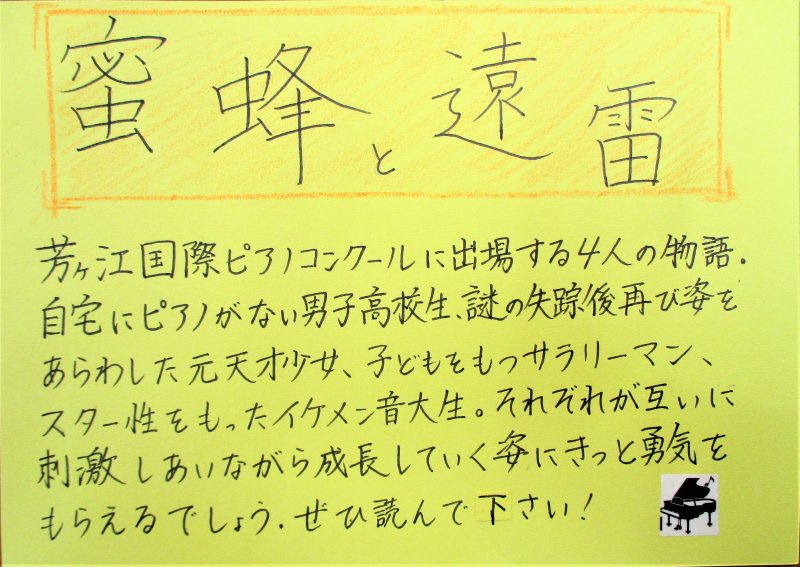 蜜蜂と遠雷
芳ヶ江国際ピアノコンクールに出場する4人の物語.
自宅にピアノがない男子高校生、謎の失踪後再び姿を
あらわした元天才少女、子どもをもつサラリーマン、
スター性をもったイケメン音大生。それぞれが互いに
刺激しあいながら成長していく姿にきっと勇気を
もらえるでしょう.ぜひ読んで下さい!